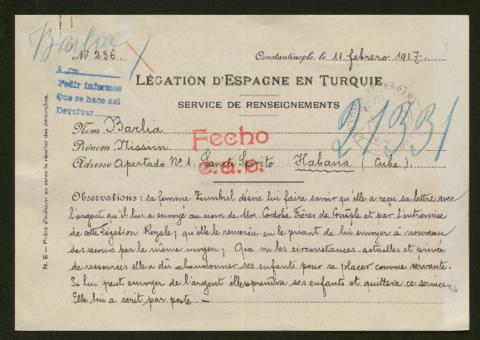 Barlia
Nº 236
Constantinople, le 11 febrero 1917.
Pedir informes
Que se hace asi
Devolver
LÉGATION D'ESPAGNE EN TURQUIE
SERVICE DE RENSEIGNEMENTS
21331
Nom Barlia
Prénom Nissim
Fecho
Adresse Apartado Nº 1. Sancti Spirito Habana (Cuba)
Observations: Sa femme Zumbul désire lui faire savoir qu'elle a reçu sa lettre avec
l'argent qu'il lui a envoyé au nom de Mr Frères de et par l'entremise
de cette Légation Royale; qu'elle le remercie, en le priant de lui envoyer à nouveau
des secours par le même moyen; Que vu les circonstances actuelles et privée
de ressources elle a dû abandonner ses enfants pour se placer comme servante.
Si lui peut envoyer de l'argent elle reprendra ses enfants et quittera ce service.
Elle lui a écrit par poste. —
N. B. – Prière d'indiquer au verso le résultat des démarches.